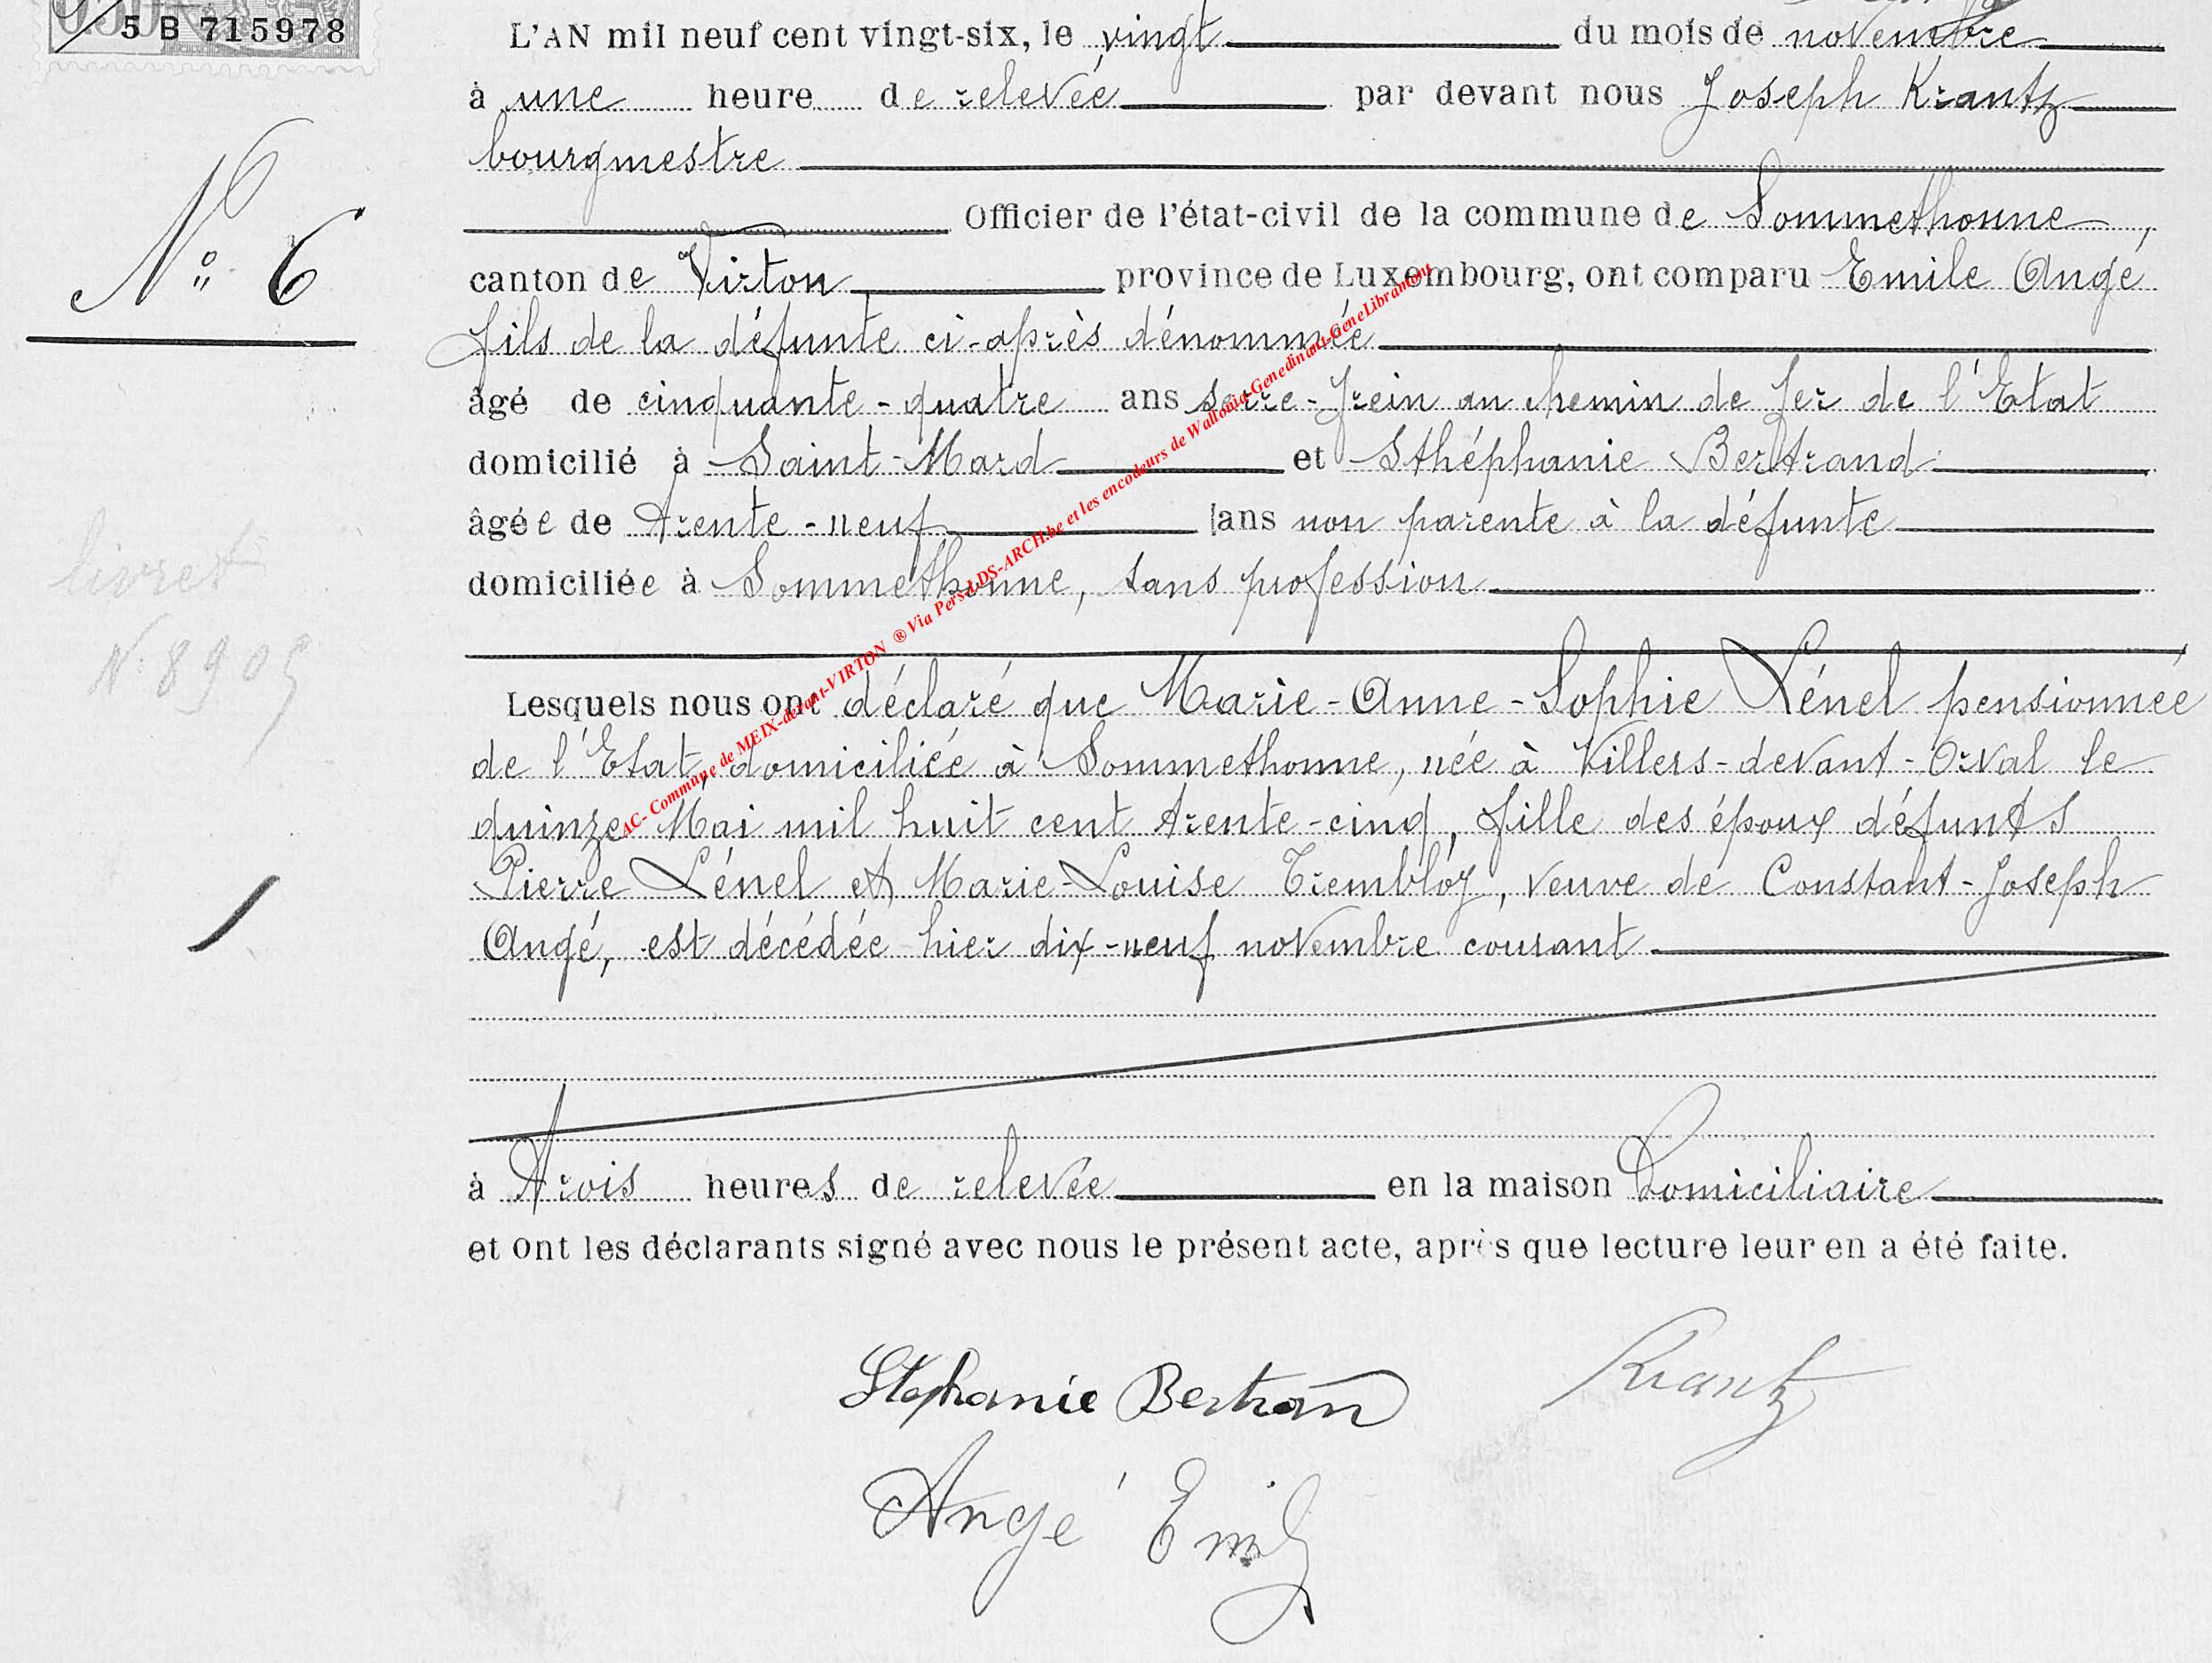 5 B 715978
L'AN mil neuf cent vingt-six, le vingt du mois de novembre
à une heure de relevée par devant nous Joseph Krantz
bourgmestre
Officier de l'état-civil de la commune de Sommethonne,
N° 6
canton de Virton province de Luxembourg, ont comparu Emile Angé
fils de la défunte ci-après dénommée
âgé de cinquante-quatre ans serre-frein au chemin de fer de l'Etat
domicilié à Saint-Mard et Sthéphanie Bertrand
âgée de trente-neuf ans non parente à la défunte
domiciliée à Sommethonne, sans profession
livret
N. 8905
Lesquels nous ont déclaré que Marie-Anne-Sophie Lénel pensionnée
de l'Etat, domiciliée à Sommethonne, née à Villers-devant-Orval le
quinze Mai mil huit cent trente-cinq, fille des époux défunts
Pierre Lénel et Marie-Louise Trembloy, veuve de Constant-Joseph
Angé, est décédée hier dix-neuf novembre courant
à trois heures de relevée en la maison Domiciliaire
et ont les déclarants signé avec nous le présent acte, après que lecture leur en a été faite.
Stephanie Bertran
Krantz
Angé Emile
AC- Commune de MEIX-devant-VIRTON ® Via Pers-LDS-ARCH.be et les encodeurs de Wallonia-Genedinant-GeneLibramont